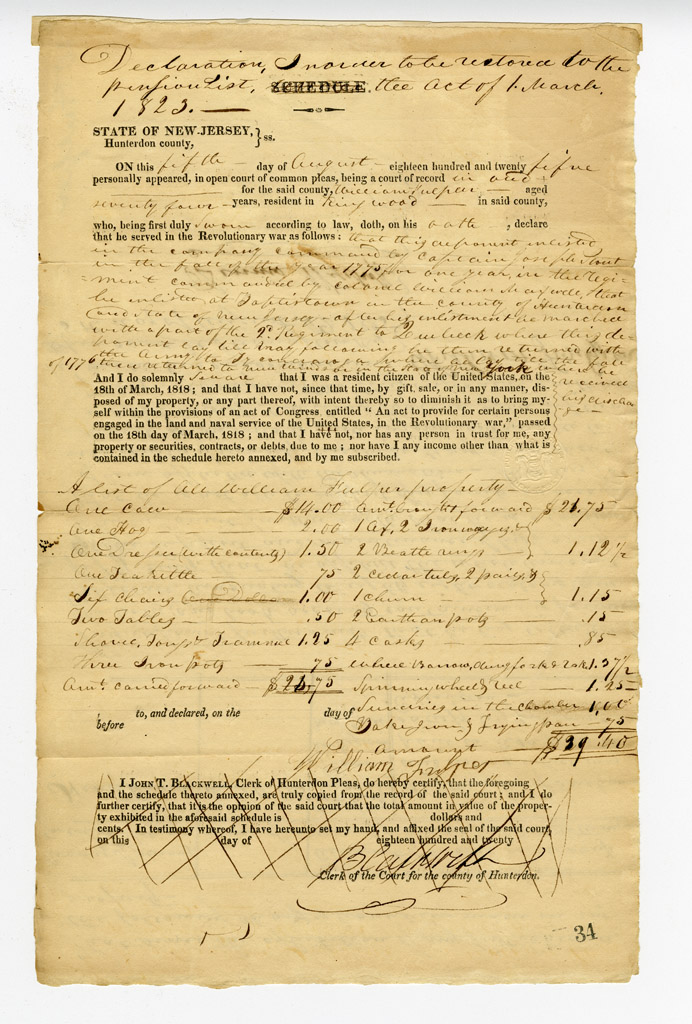 Declaration, In order to be restored to the
pension List, SCHEDULE. the Act of 1. March,
1823.
STATE OF NEW-JERSEY, } ss.
Hunterdon county,
ON this fifth day of August eighteen hundred and twenty five
personally appeared, in open court of common pleas, being a court of record in and
for the said county, William Fulper aged
seventy four years, resident in Kingwood in said county,
who, being first duly sworn according to law, doth, on his oath, declare
that he served in the Revolutionary war as follows: that this deponent enlisted
in the company command by Captain Joseph Stout
in the fall of the year 1775 for one year, in the regi-
ment commanded by colonel William Maxwell, that
he enlisted at Baptistown in the county of Hunterdon
and state of New Jersey - after his enlistment he marched
with a part of the 2d. Regiment to Quebeck where this de-
ponent lay till May following he then returned with
the Army to Ticonderoga where he lay till the fall
of 1776 then returned to in the York where he
received
his discharge
And I do solemnly swear that I was a resident citizen of the United States, on the
18th of March, 1818 ; and that I have not, since that time, by gift, sale, or in any manner, dis-
posed of my property, or any part thereof, with intent thereby so to diminish it as to bring my-
self within the provisions of an act of Congress entitled “ An act to provide for certain persons
engaged in the land and naval service of the United States, in the Revolutionary war,” passed
on the 18th day of March, 1818 ; and that I have not, nor has any person in trust for me, any
property or securities, contracts, or debts, due to me ; nor have I any income other than what is
contained in the schedule hereto annexed, and by me subscribed.
A list of All William Fulper property
One Cow $14.00 Amt. brought forward $21.75
One Hog 2.00 1 Ax, 2 Iron wedges &
One Dresser (with contents) 1.50 2 Beatle rings 1.12½
One Tea Kettle 75 2 cedar tubs, 2 pails, &
Six Chairs 1.00 1 churn 1.15
Two Tables .50 2 Earthan pots .15
Shovel, Tongs & Trammel 1.25 4 casks .85
Three Iron pots 75 Wheel Barrow, dung fork & rake 1.37½
Amt. carried forward $21.75 Spinning wheel & reel 1.25
Sundries in the chamber 1.00
to, and declared, on the day of
before Bake Iron & Frying pan 75
Amount $29.40
William Fulper
I JOHN T. BLACKWELL, Clerk of Hunterdon Pleas, do hereby certify, that the foregoing
and the schedule thereto annexed, are truly copied from the record of the said court ; and I do
further certify, that it is the opinion of the said court that the total amount in value of the proper-
ty exhibited in the aforesaid schedule is dollars and
cents. In testimony whereof, I have hereunto set my hand, and affixed the seal of the said court,
on this day of eighteen hundred and twenty
Blackwell
Clerk of the Court for the county of Hunterdon.
34